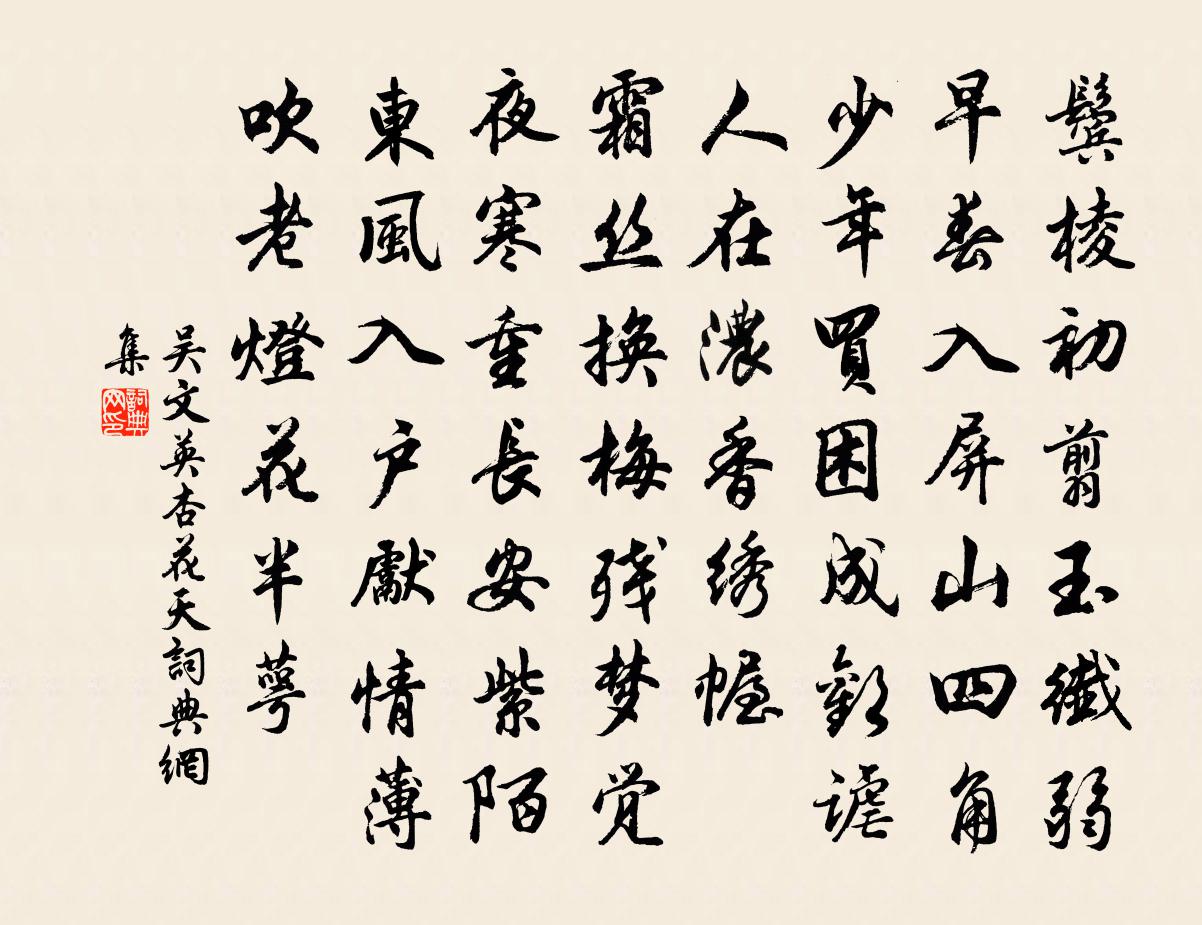 鬓棱初翦玉纖弱
早春入屏山四角
少年買困成歡謔
人在濃香绣幄
霜丝换梅残梦觉
夜寒重長安紫陌
東風入户獻情薄
吹老燈花半萼
吴文英杏花天詞典網
集
詞典网印